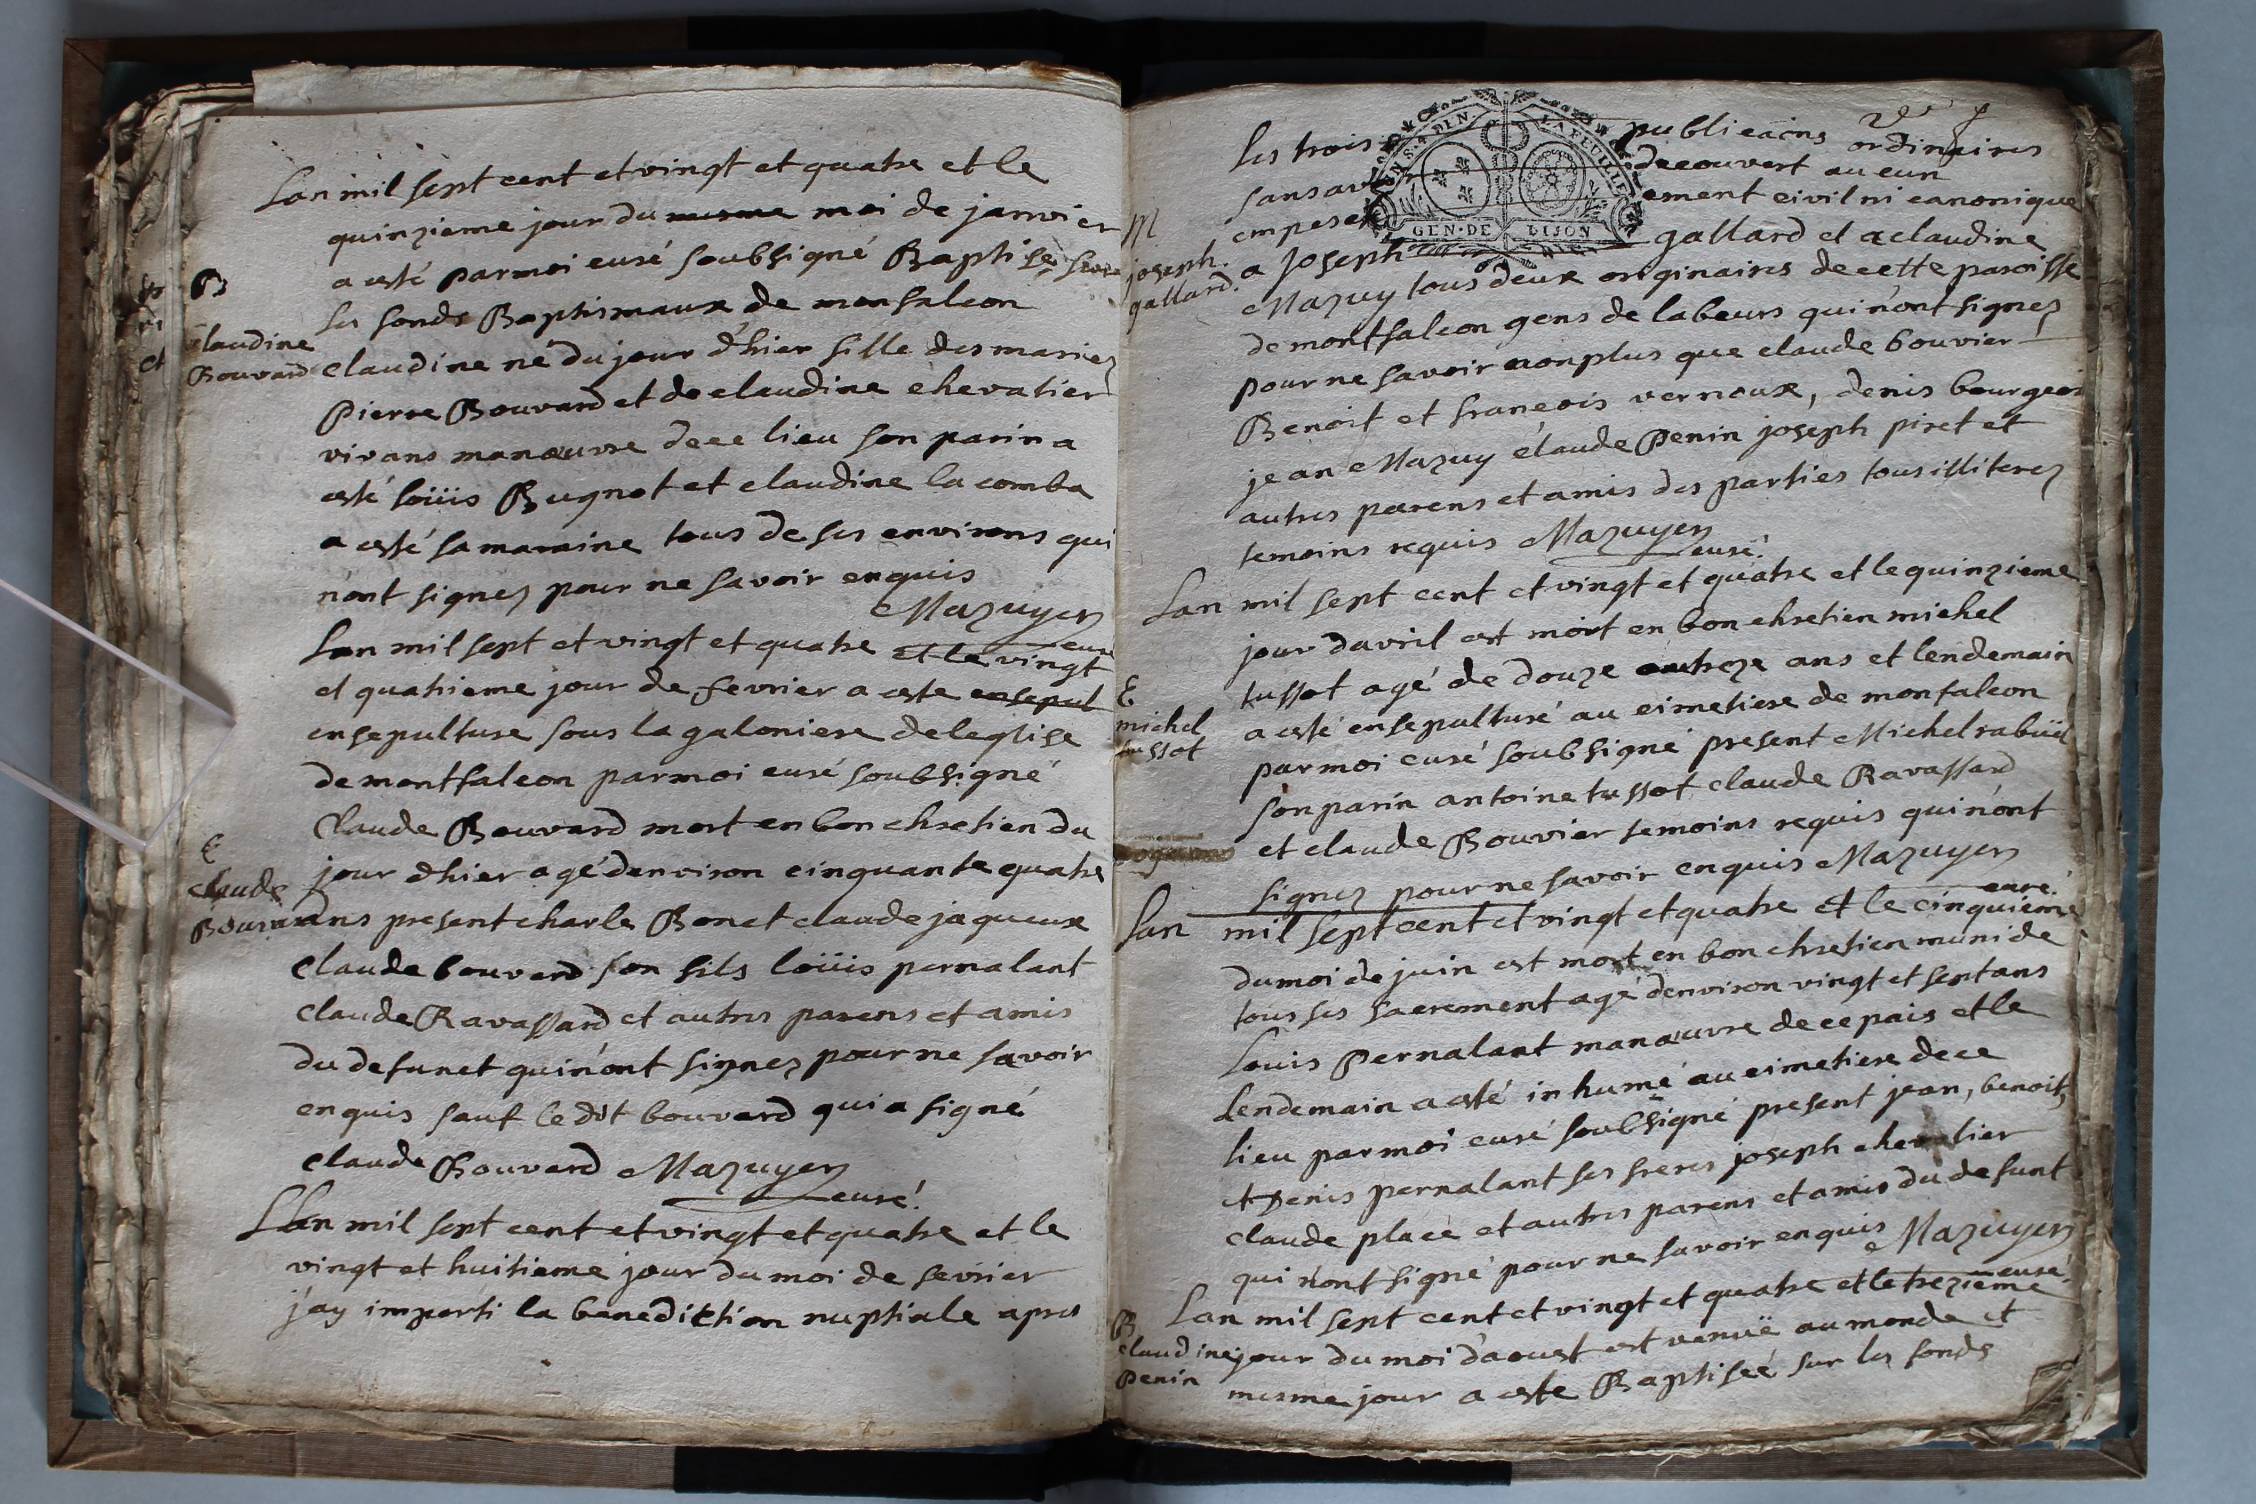 Lan mil sept cent et vingt et quatre et le
quinzieme jour du mesme moi de janvier
a esté par moi curé soubsigné Baptisé sur
les fonds Baptismaux de monfalcon
B
claudine
Bouvard
claudine né du jour d'hier fille des mariez
Pierre Bouvard et de claudine chevalier
vivans manœuvre de ce lieu son parin a
esté loüis Bugnot et claudine la comba
a esté sa maraine tous de ses environs qui
n'ont signez pour ne savoir enquis
Mazuyer
curé
Lan mil sept et vingt et quatre et le vingt
et quatrieme jour de fevrier a este ensepul
ensepulture sous la galoniere de leglise
de montfalcon par moi curé soubsigné
Claude Bouvard mort en bon chretien du
E
claude
Bouvard
jour d'hier agé denviron cinquante quatre
ans present charle Bonet claude jaqueux
claude bouvard son fils loüis pernalant
claude Ravassard et autres parens et amis
du defunct qui n'ont signez pour ne savoir
enquis sauf le dit bouvard qui a signé
claude Bouvard Mazuyer
curé.
Lan mil sept cent et vingt et quatre et le
vingt et huitieme jour du moi de fevrier
j'ay imparti la benediction nuptiale apres
les trois publicaõns ordinaires
sans av decouvert aucun
empes ement civil ni canonique
GEN·DE DIJON
M
joseph
gallard.
a joseph gallard et a claudine
Mazuy tous deux originaires de cette paroisse
de montfalcon gens de labeurs qui n'ont signez
pour ne savoir non plus que claude bouvier
Benoit et francois vernoux, denis bourgeois
jean Mazuy claude Penin joseph piret et
autres parens et amis des parties tous illiterez
temoins requis Mazuyer
curé.
Lan mil sept cent et vingt et quatre et le quinzieme
jour davril est mort en bon chretien michel
E
michel
tussot
tussot agé de douze ou treze ans et lendemain
a esté ensepulturé au cimetiere de monfalcon
par moi curé soubsigné present Michel rabuël
son parin antoine tussot claude Ravassard
et claude Bouvier temoins requis qui n'ont
signez pour ne savoir enquis Mazuyer
curé.
Lan mil sept cent et vingt et quatre et le cinquieme
du moi de juin est mort en bon chretien muni de
tous ses sacrement agé denviron vingt et sept ans
Louis Pernalant manœuvre de ce païs et le
lendemain a esté inhumé au cimetiere de ce
lieu par moi curé soubsigné present jean, benoit,
et Denis pernalant ses freres joseph chevalier
claude place et autres parens et amis du defunt
qui n'ont signé pour ne savoir enquis Mazuyer
curé.
Lan mil sept cent et vingt et quatre et le trezieme
B
claudine
Penin
jour du moi d'aoust est venuë au monde et
mesme jour a este Baptisée sur les fonds